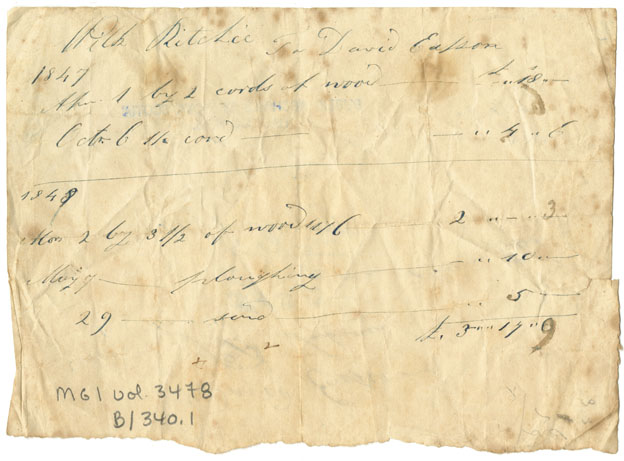 Wilk Ritchie To David Easson
1847
1 by 2 cords of wood £ " 18 "
Octr 6 1/2 cord " 4 " 6
184
2 by 3 1/2 of wood 11/6 2 " - " 3
May 9 ploughing " 10 "
29 " 5 "
£ 3 " 17 " 9
MG1 vol. 3478
B/340.1